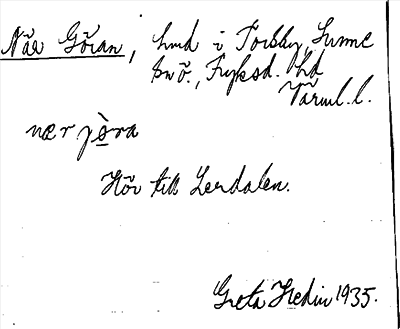 När Göran, hmd i Torsby, Sunne
snö., Fryksd. hd
Värml. l.
nær jòra
Hör till Lerdalen.
Greta Hedin 1935.